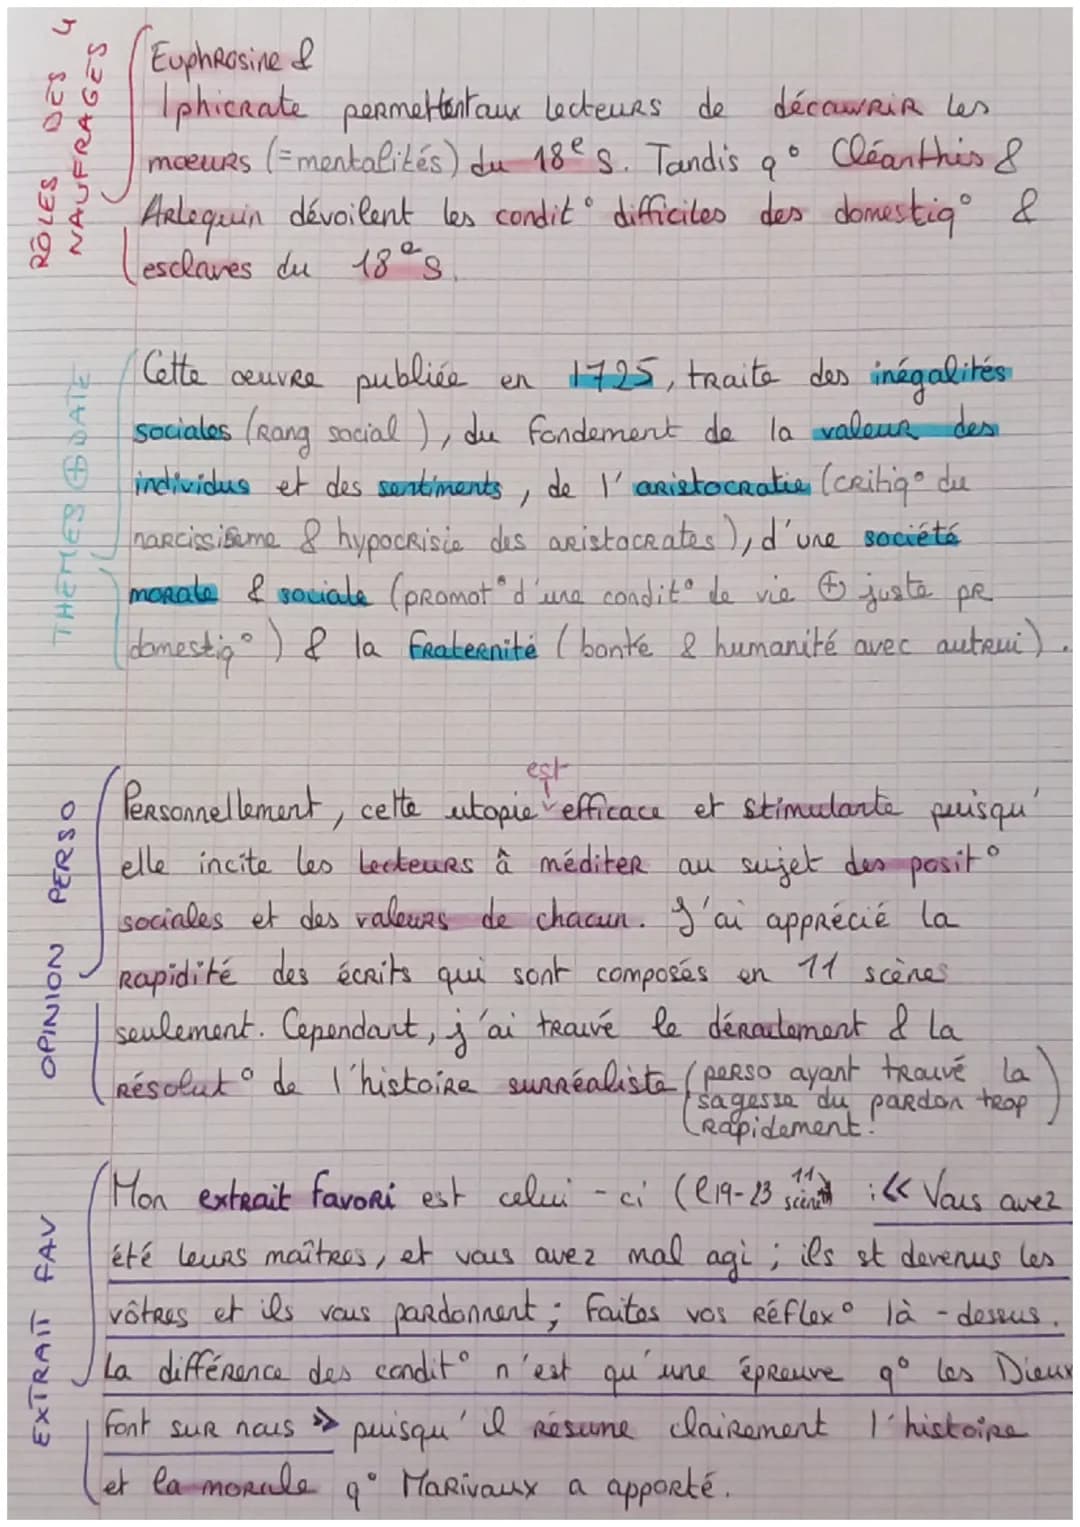 RÔLES DES 4
NAUFRAGES
Euphrosine &
Iphicrate permettent aux lecteurs de découvrir les
moeurs (=mentalités) du 18e s. Tandis q° Cléanthis &
Arlequin dévoilent les condit° difficiles des domestiq° &
esclaves du 18e s.
THEMES ⊕ DATE
Cette œuvre publiée en 1725, traite des inégalités
sociales (rang social), du fondement de la valeur des
individus et des sentiments, de l'aristocratie (critiq° du
narcissisme & hypocrisie des aristocrates), d'une société
morale & sociale (promot° d'une condit° de vie ⊕ juste pr
domestiq°) & la fraternité (bonté & humanité avec autrui).
OPINION PERSO
est
Personnellement, cette utopie efficace et stimulante puisqu'
elle incite les lecteurs à méditer au sujet des posit°
sociales et des valeurs de chacun. J'ai apprécié la
rapidité des écrits qui sont composés en 11 scènes
seulement. Cependant, j'ai trouvé le déroulement & la
résolut° de l'histoire surréaliste (perso ayant trouvé la
sagesse du pardon trop
rapidement.)
EXTRAIT FAV
Mon extrait favori est celui-ci (l19-23 11 scène) : << Vous avez
été leurs maîtres, et vous avez mal agi ; ils st devenus les
vôtres et ils vous pardonnent ; faites vos réflex° là-dessus.
La différence des condit° n'est qu'une épreuve q° les Dieux
font sur nous >> puisqu'il résume clairement l'histoire
et la morale q° Marivaux a apporté.